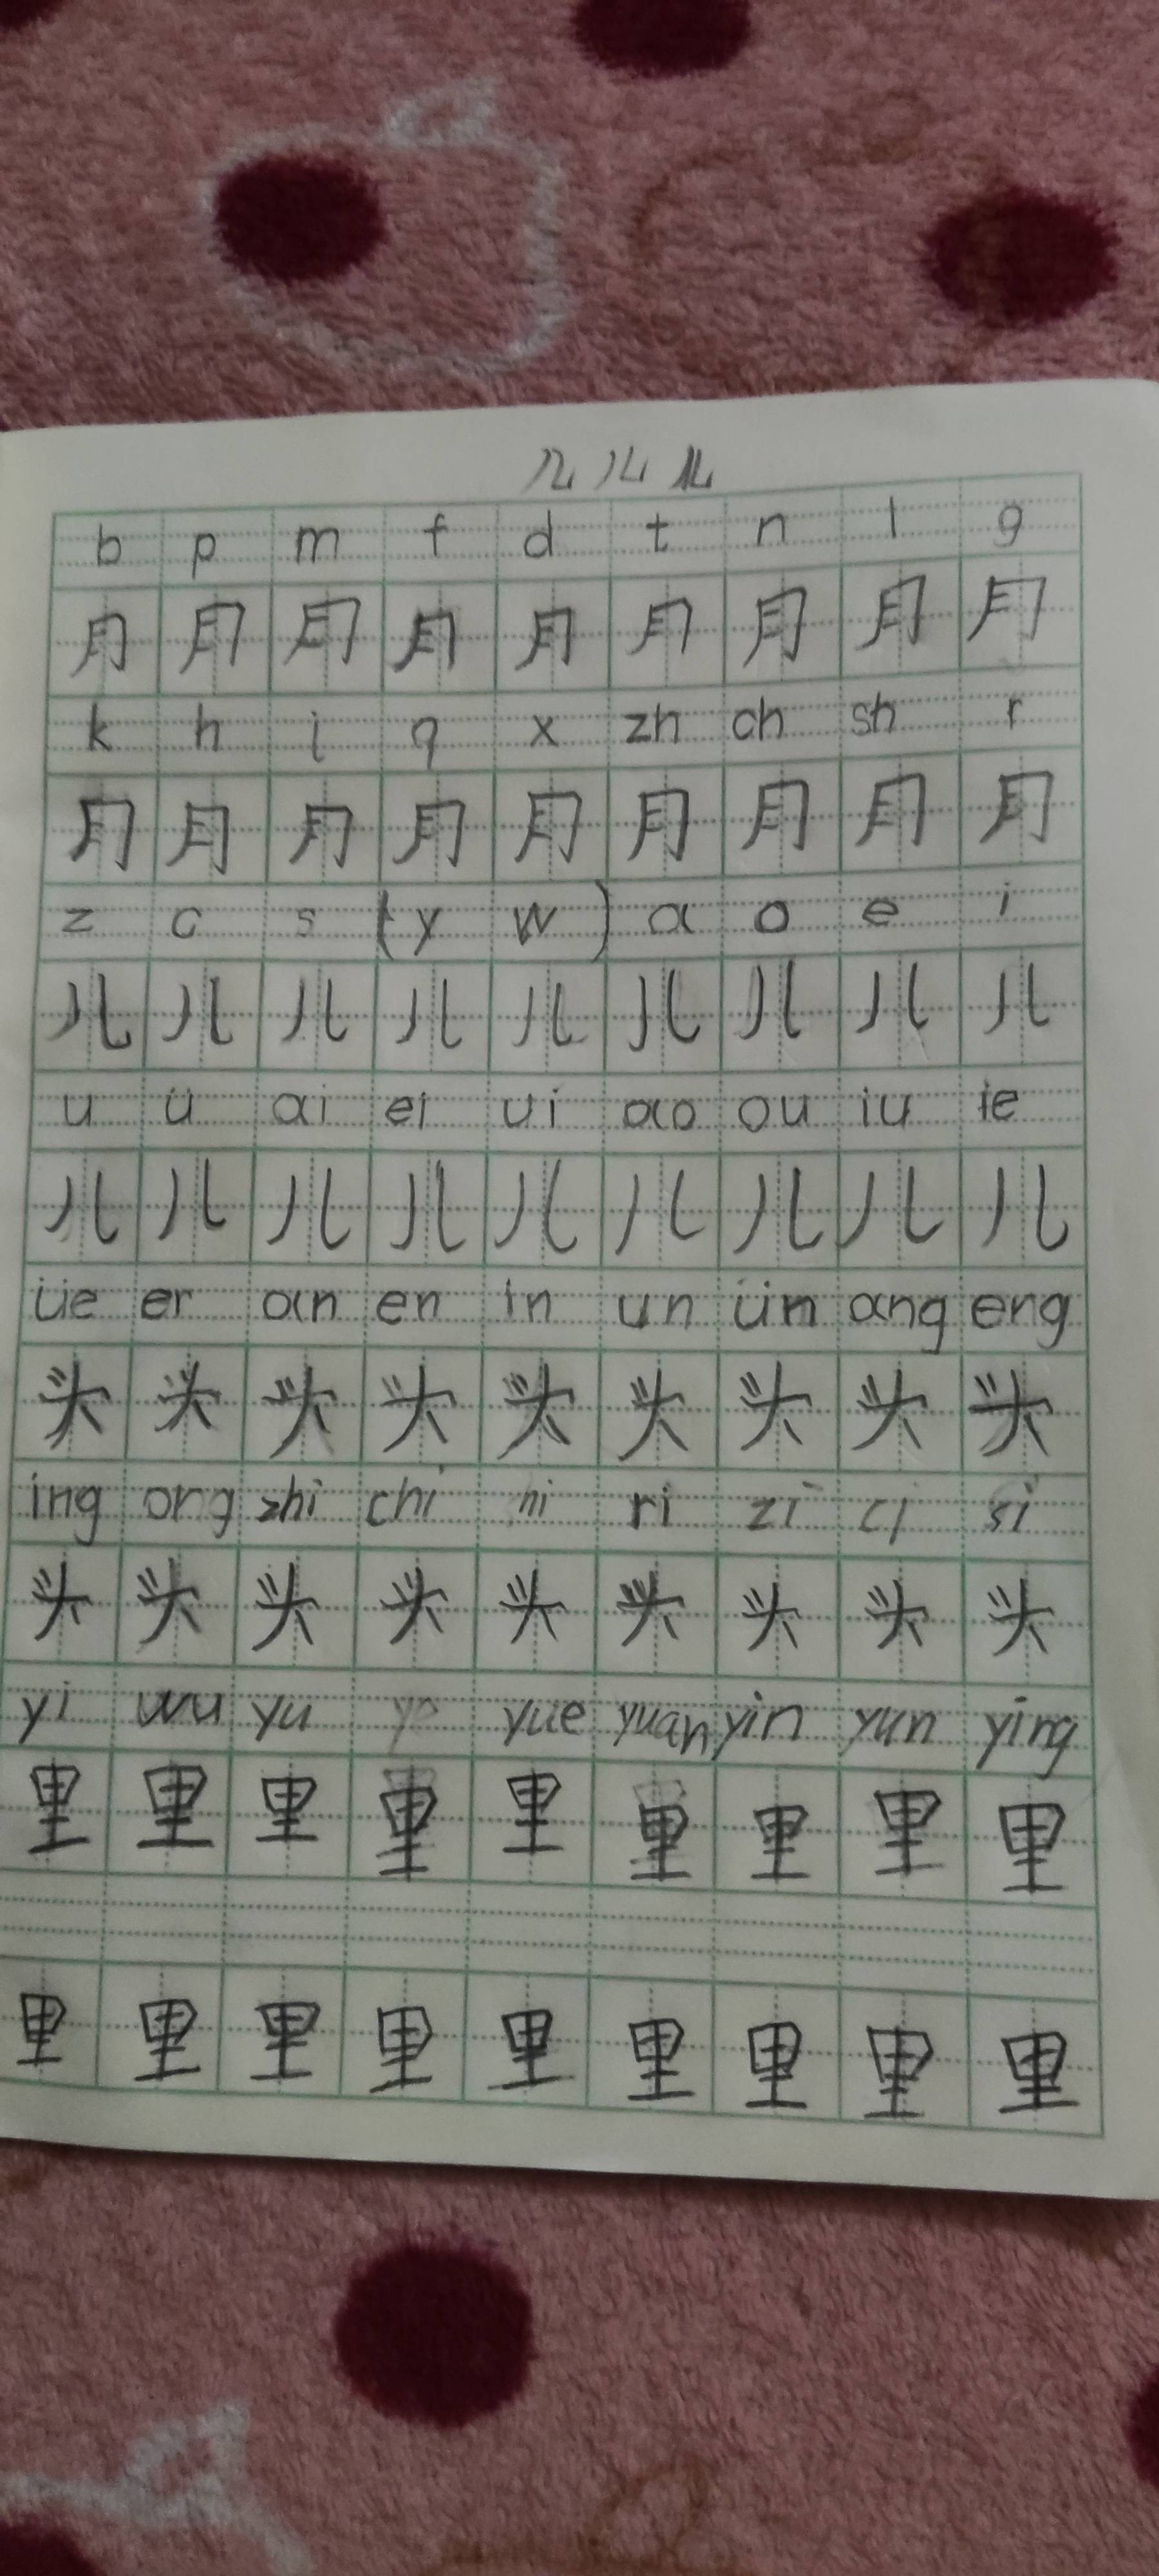 b p m f d t n l g
月 月 月 月 月 月 月 月 月
k h j q x zh ch sh r
月 月 月 月 月 月 月 月 月
z c s (y w) a o e i
儿 儿 儿 儿 儿 儿 儿 儿 儿
u ü ai ei ui ao ou iu ie
儿 儿 儿 儿 儿 儿 儿 儿 儿
üe er an en in un ün ang eng
头 头 头 头 头 头 头 头 头
ing ong zhi chi ri zi ci si
头 头 头 头 头 头 头 头 头
yi wu yu ye yue yuan yin yun ying
里 里 里 里 里 里 里 里 里
里 里 里 里 里 里 里 里 里